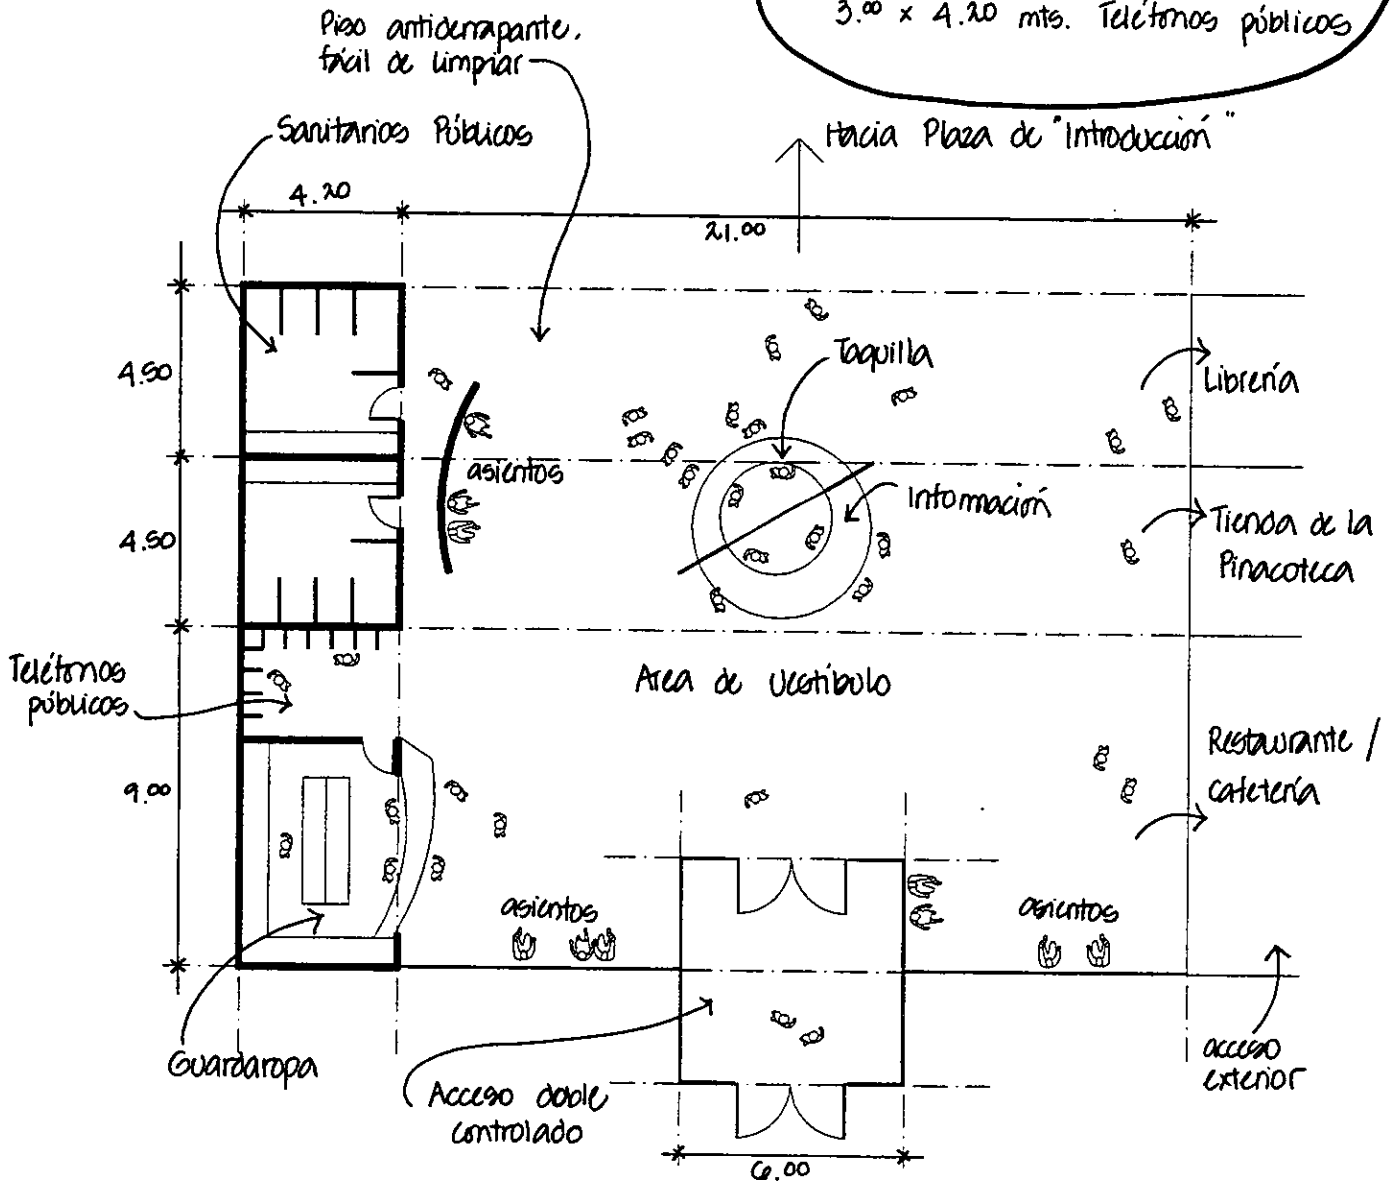 3.00 x 4.20 mts. Teléfonos públicos
Piso antiderrapante,
fácil de limpiar
Sanitarios Públicos
Hacia Plaza de "Introducción"
4.20
21.00
4.50
Taquilla
Librería
asientos
Información
4.50
Tienda de la
Pinacoteca
Teléfonos
públicos
Area de Vestíbulo
Restaurante /
cafetería
9.00
asientos
asientos
Guardaropa
Acceso doble
controlado
acceso
exterior
6.00